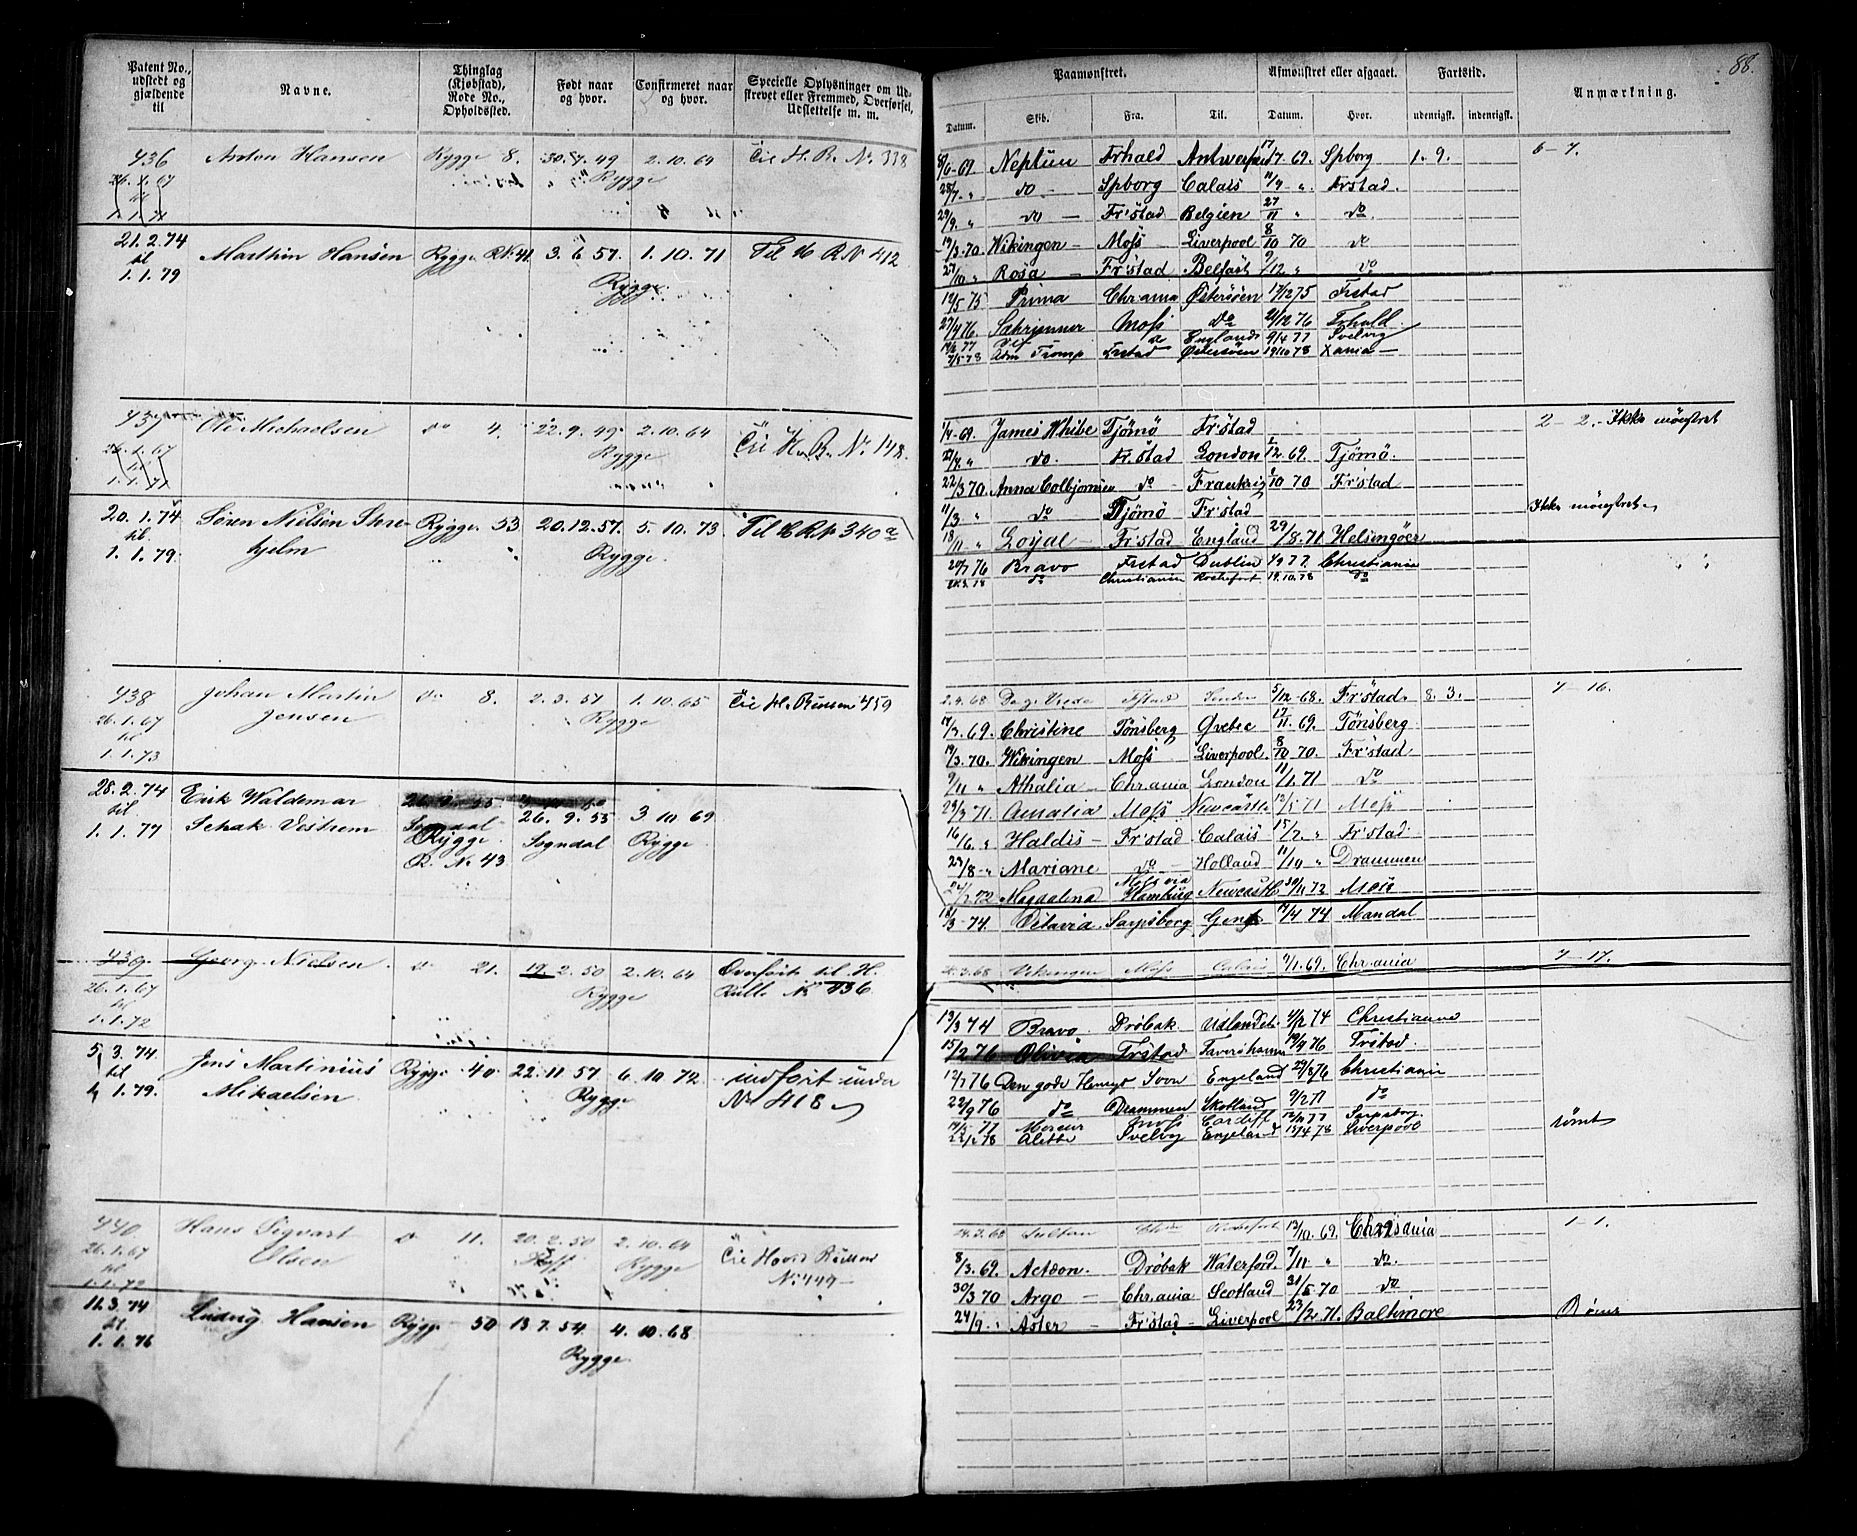 Patent No., udstedt og gjældende til
Navne.
Thinglag (Kjøbstad), Rode No., Opholdssted.
Født naar og hvor.
Confirmeret naar og hvor.
Specielle Oplysninger om Udskrevet eller Fremmed, Overførsel, Udslettelse m. m.
436 Anton Hansen Rygge 8. 30. 7. 49 2. 10. 64 Til H. R. No 338
26. 1. 67 Rygge
til
1. 1. 71
21. 2. 74 Marthin Hansen Rygge RN. 41 3. 6 57. 1. 10. 71 Til H RN 412
til
1. 1. 79 Rygge
437 Ole Michaelsen do 4. 22. 9. 49 2. 10. 64 Til H. R. No 148.
26. 1. 67 Rygge
til
1. 1. 71
20. 1. 74 Søren Nielsen Rygge 53 20. 12. 57. 5. 10. 73 Til H RN 340 a
til hjelm
1. 1. 79. Rygge
438 Johan Martin do 8. 2. 3. 51 1. 10. 65 Til H. Rullen 459
26. 1. 67 Jensen Rygge
til
1. 1. 73
28. 2. 74 Erik Waldemar 26. 9. 55 3 10 69
til Schak Vestrem Rygge Sogndal Rygge
1. 1. 77 R. No 43
439 Georg Nielsen do 21. 19. 2. 50 2. 10. 64 Overført til H.
26. 1. 67 Rygge Rulle No 436
til
1. 1. 72
5. 3. 74. Jens Martinius Rygge 40 22. 11. 57 6. 10. 72 indført under
til Mikaelsen Rygge No 418
1. 79.
440 Hans Sigvart do 11. 20. 2. 50 2. 10. 64 Til Hoved Rullens
26. 1. 67 Olsen Rygge No 449
til
1. 1. 72
11. 3. 74 Ludvig Hansen Rygge 50 13. 7. 54. 4. 10. 68
til
1. 1. 76 Rygge
88.
Paamønstret.
Afmønstret eller afgaaet.
Fartstid.
Anmærkning.
Datum. Skib. Fra. Til. Datum. Hvor. udenrigsk. indenrigsk.
8/6-69. Neptun Frhald Antwerpen 17/7 69. Spborg 1. 9. 6-7.
28/7. " do Spborg Calais 11/9 " Frstad.
29/9. " do Fr'stad Belgien 27/11 " do.
19/3. 70. Wikingen Moss Liverpool 8/10 70 do
27/10 " Rosa Fr'stad Belfast 9/12 " do
12/5 75 Prima Chr.ania Østersøen 13/12 75 Frstad
27/4 76. Moss do 21/12 76 Frhald
77 England 9/4 77 Svelvig
7/5 78 Adm Tromp Frstad Østersøen 19/10 78 Xania
1/4-69. James White Tjømø Fr'stad 2-2. Ikke mønstret
27/4. " do. Fr.stad London 1/12 69. Tjømø.
22/3 70. Anna Colbjørnsen do Frankrig 8/10 70 Fr'stad
11/3. " do Tjømø Fr'stad Ikke mønstret
18/11 " Loyal Fr'stad England 29/8. 71. Helsingöer
20/7 76 Bravo Frstad Dublin 77 Christiania
do Christiania Rochefort 19. 10. 78 do
2. 4. 68 5/12-68. Fr'stad. 8. 3. 7-16.
17/3. 69. Christine Tønsberg Qvebec 17/11. 69. Tønsberg.
19/3. 70. Wikingen Moss Liverpool. 8/10 70. Fr'stad
9/11 " Athalia Chr.ania London 11/1. 71 do
29/3 71. Amalia Moss Newcastle 12/5 71 Moss
16/6. " Haldis Fr'stad Calais 15/2. " Fr'stad.
23/8. " Mariane do Holland 11/10 " Drammen
72 Magdalena Moss via Hamburg Newcastle 30/11 72 Moss
3-74. Octavia. Sarpsborg 17/4 74 Mandal
68 Vikingen Moss Calais 9/1. 69. Chr.ania 7-17.
13/3 74 Bravo Drøbak Udlandet 74 Christiania
15/2 76 Olivia Frstad 19/9 76 Frstad.
12/7 76 Den gode Svon England 76 Christiania
22/9 76 do Drammen Skotland 9/2 77 do
77 Mercur Moss Cardiff 77 Sarpsborg.
78 Alette Svelvig England 13/4 78 Liverpool rømt
68 Sultan 13/10. 69. Christiania 1-1.
8/3. 69. Actæon. Drøbak Waterford. 7/11 " do.
30/3 70 Argo Chr.ania Scotland 31/5 70 do
24/9. " Aster Fr'stad Liverpool 23/2. 71. Baltimore Rømt